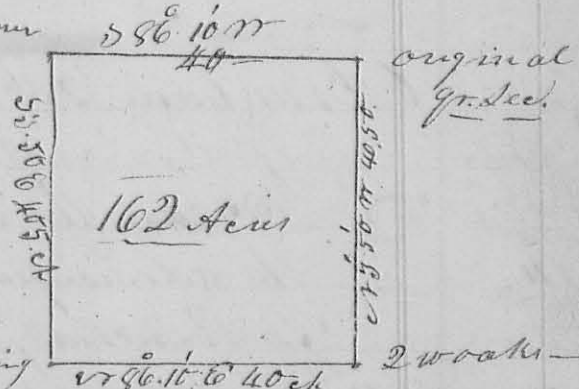 S 86° 10' W
40
original
qr. Sec.
S 3. 50 E 40.50
162 Acres
N 3° 50' W 40.50
2 w oaks
N 86° 10' E 40 ch